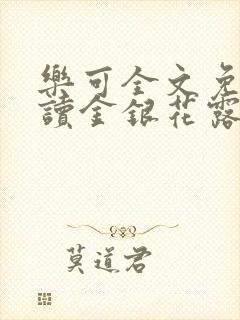 樂可全文免
讀金銀花露
莫道君